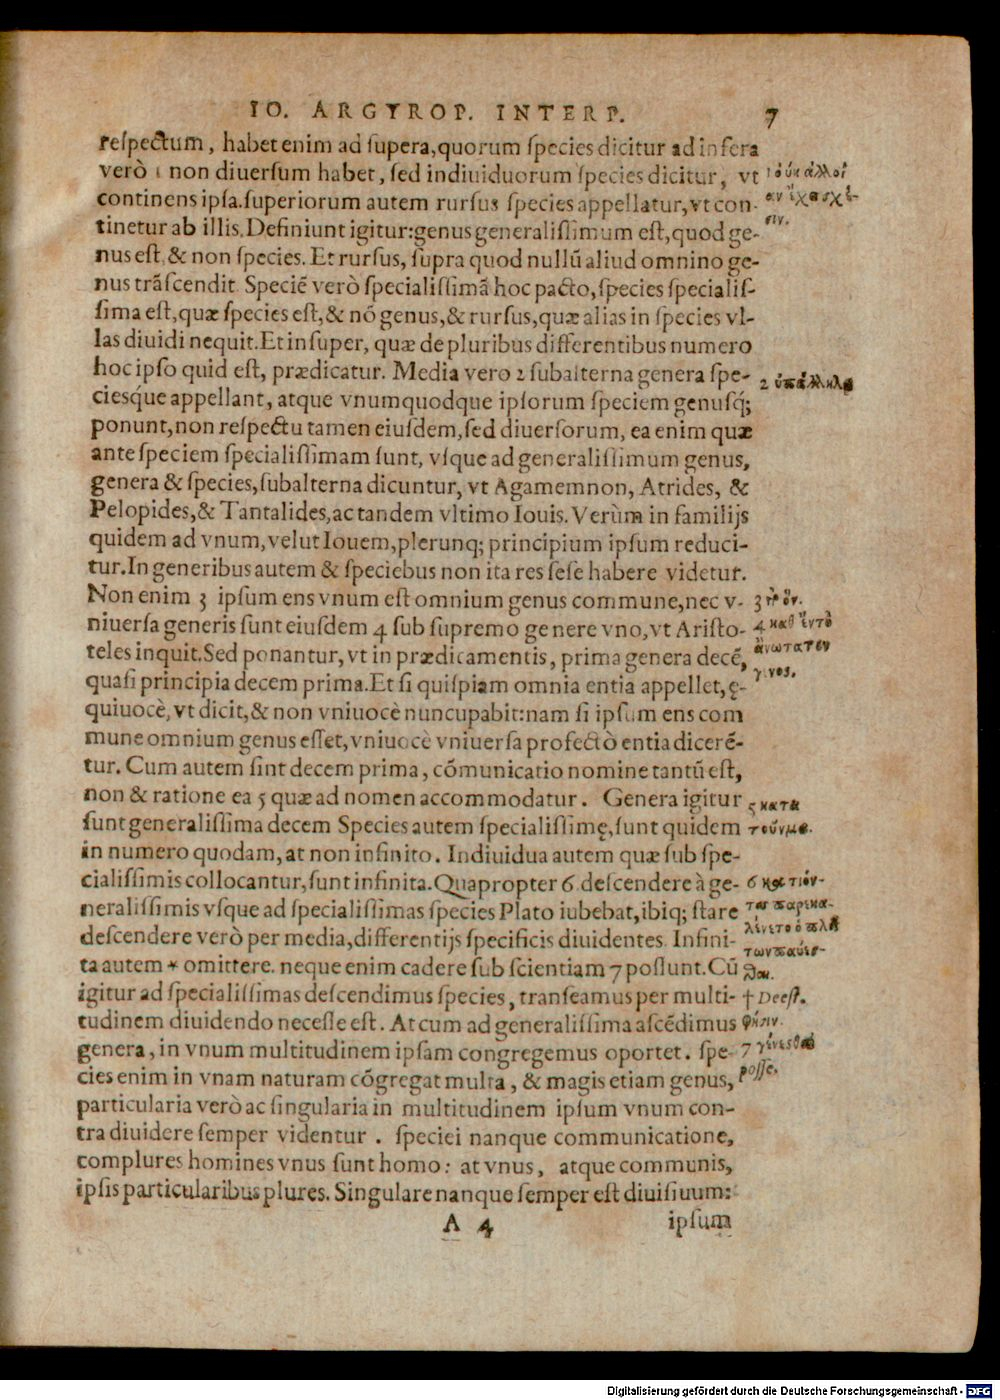 IO. ARGYROP. INTERP. 7
respectum, habet enim ad supera, quorum species dicitur ad infera
verò 1 non diuersum habet, sed indiuiduorum species dicitur, vt
continens ipsa. superiorum autem rursus species appellatur, vt con-
tinetur ab illis. Definiunt igitur: genus generalissimum est, quod ge-
nus est, & non species. Et rursus, supra quod nullũ aliud omnino ge-
nus trãscendit Speciẽ verò specialissimã hoc pacto, species specialis-
sima est, quæ species est, & nõ genus, & rursus, quæ alias in species vl-
las diuidi nequit. Et insuper, quæ de pluribus differentibus numero
hoc ipso quid est, prædicatur. Media vero 2 subalterna genera spe-
ciesq́ue appellant, atque vnumquodque ipsorum speciem genusq́;
ponunt, non respectu tamen eiusdem, sed diuersorum, ea enim quæ
ante speciem specialissimam sunt, vsque ad generalissimum genus,
genera & species, subalterna dicuntur, vt Agamemnon, Atrides, &
Pelopides, & Tantalides, ac tandem vltimo Iouis. Verùm in familijs
quidem ad vnum, velut Iouem, plerunq; principium ipsum reduci-
tur. In generibus autem & speciebus non ita res sese habere videtur.
Non enim 3 ipsum ens vnum est omnium genus commune, nec v-
niuersa generis sunt eiusdem 4 sub supremo genere vno, vt Aristo-
teles inquit. Sed ponantur, vt in prædicamentis, prima genera decẽ,
quasi principia decem prima. Et si quispiam omnia entia appellet, ę-
quiuocè, vt dicit, & non vniuocè nuncupabit: nam si ipsum ens com
mune omnium genus esset, vniuocè vniuersa profectò entia dicerẽ-
tur. Cum autem sint decem prima, cõmunicatio nomine tantũ est,
non & ratione ea 5 quæ ad nomen accommodatur. Genera igitur
sunt generalissima decem Species autem specialissimę, sunt quidem
in numero quodam, at non infinito. Indiuidua autem quæ sub spe-
cialissimis collocantur, sunt infinita. Quapropter 6 descendere à ge-
neralissimis vsque ad specialissimas species Plato iubebat, ibiq; stare
descendere verò per media, differentijs specificis diuidentes. Infini-
ta autem * omittere. neque enim cadere sub scientiam 7 possunt. Cũ
igitur ad specialissimas descendimus species, transeamus per multi-
tudinem diuidendo necesse est. At cum ad generalissima ascẽdimus
genera, in vnum multitudinem ipsam congregemus oportet. spe-
cies enim in vnam naturam cõgregat multa, & magis etiam genus,
particularia verò ac singularia in multitudinem ipsum vnum con-
tra diuidere semper videntur. speciei nanque communicatione,
complures homines vnus sunt homo: at vnus, atque communis,
ipsis particularibus plures. Singulare nanque semper est diuisiuum:
A 4 ipsum
1 οὐκ ἀλλοί
αν ἴχασχέ-
σιν.
2 ὑπάλληλα
3 τὸ ὄν.
4 καθ' ἕν τὸ
ἀνωτάτεν
γένος.
5 κατὰ
τοὔνμα.
6
† Deest.
φησιν.
7 γίνεσθαι
posse.
Digitalisierung gefördert durch die Deutsche Forschungsgemeinschaft - DFG